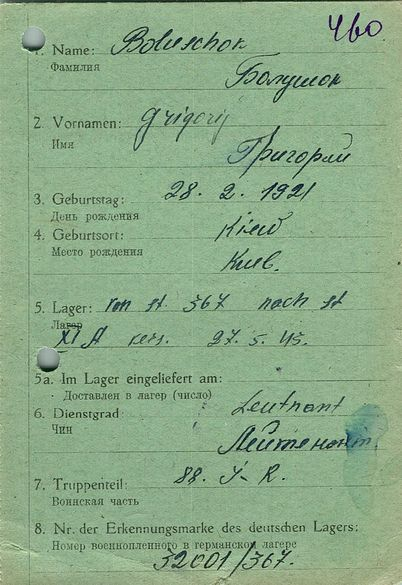 460
1. Name: Boluschok
Фамилия
Болушок
2. Vornamen: Grigorij
Имя
Григорий
3. Geburtstag: 28. 2. 1921
День рождения
4. Geburtsort: Kiew
Место рождения
Киев.
5. Lager: von st 367 nach st
Лагер
XI A vers. 27. 5. 43.
5a. Im Lager eingeliefert am:
Доставлен в лагер (число)
6. Dienstgrad: Leutnant
Чин
Лейтенант.
7. Truppenteil: 88. J-R.
Воинская часть
8. Nr. der Erkennungsmarke des deutschen Lagers:
Номер военнопленного в германском лагере
52001/367.